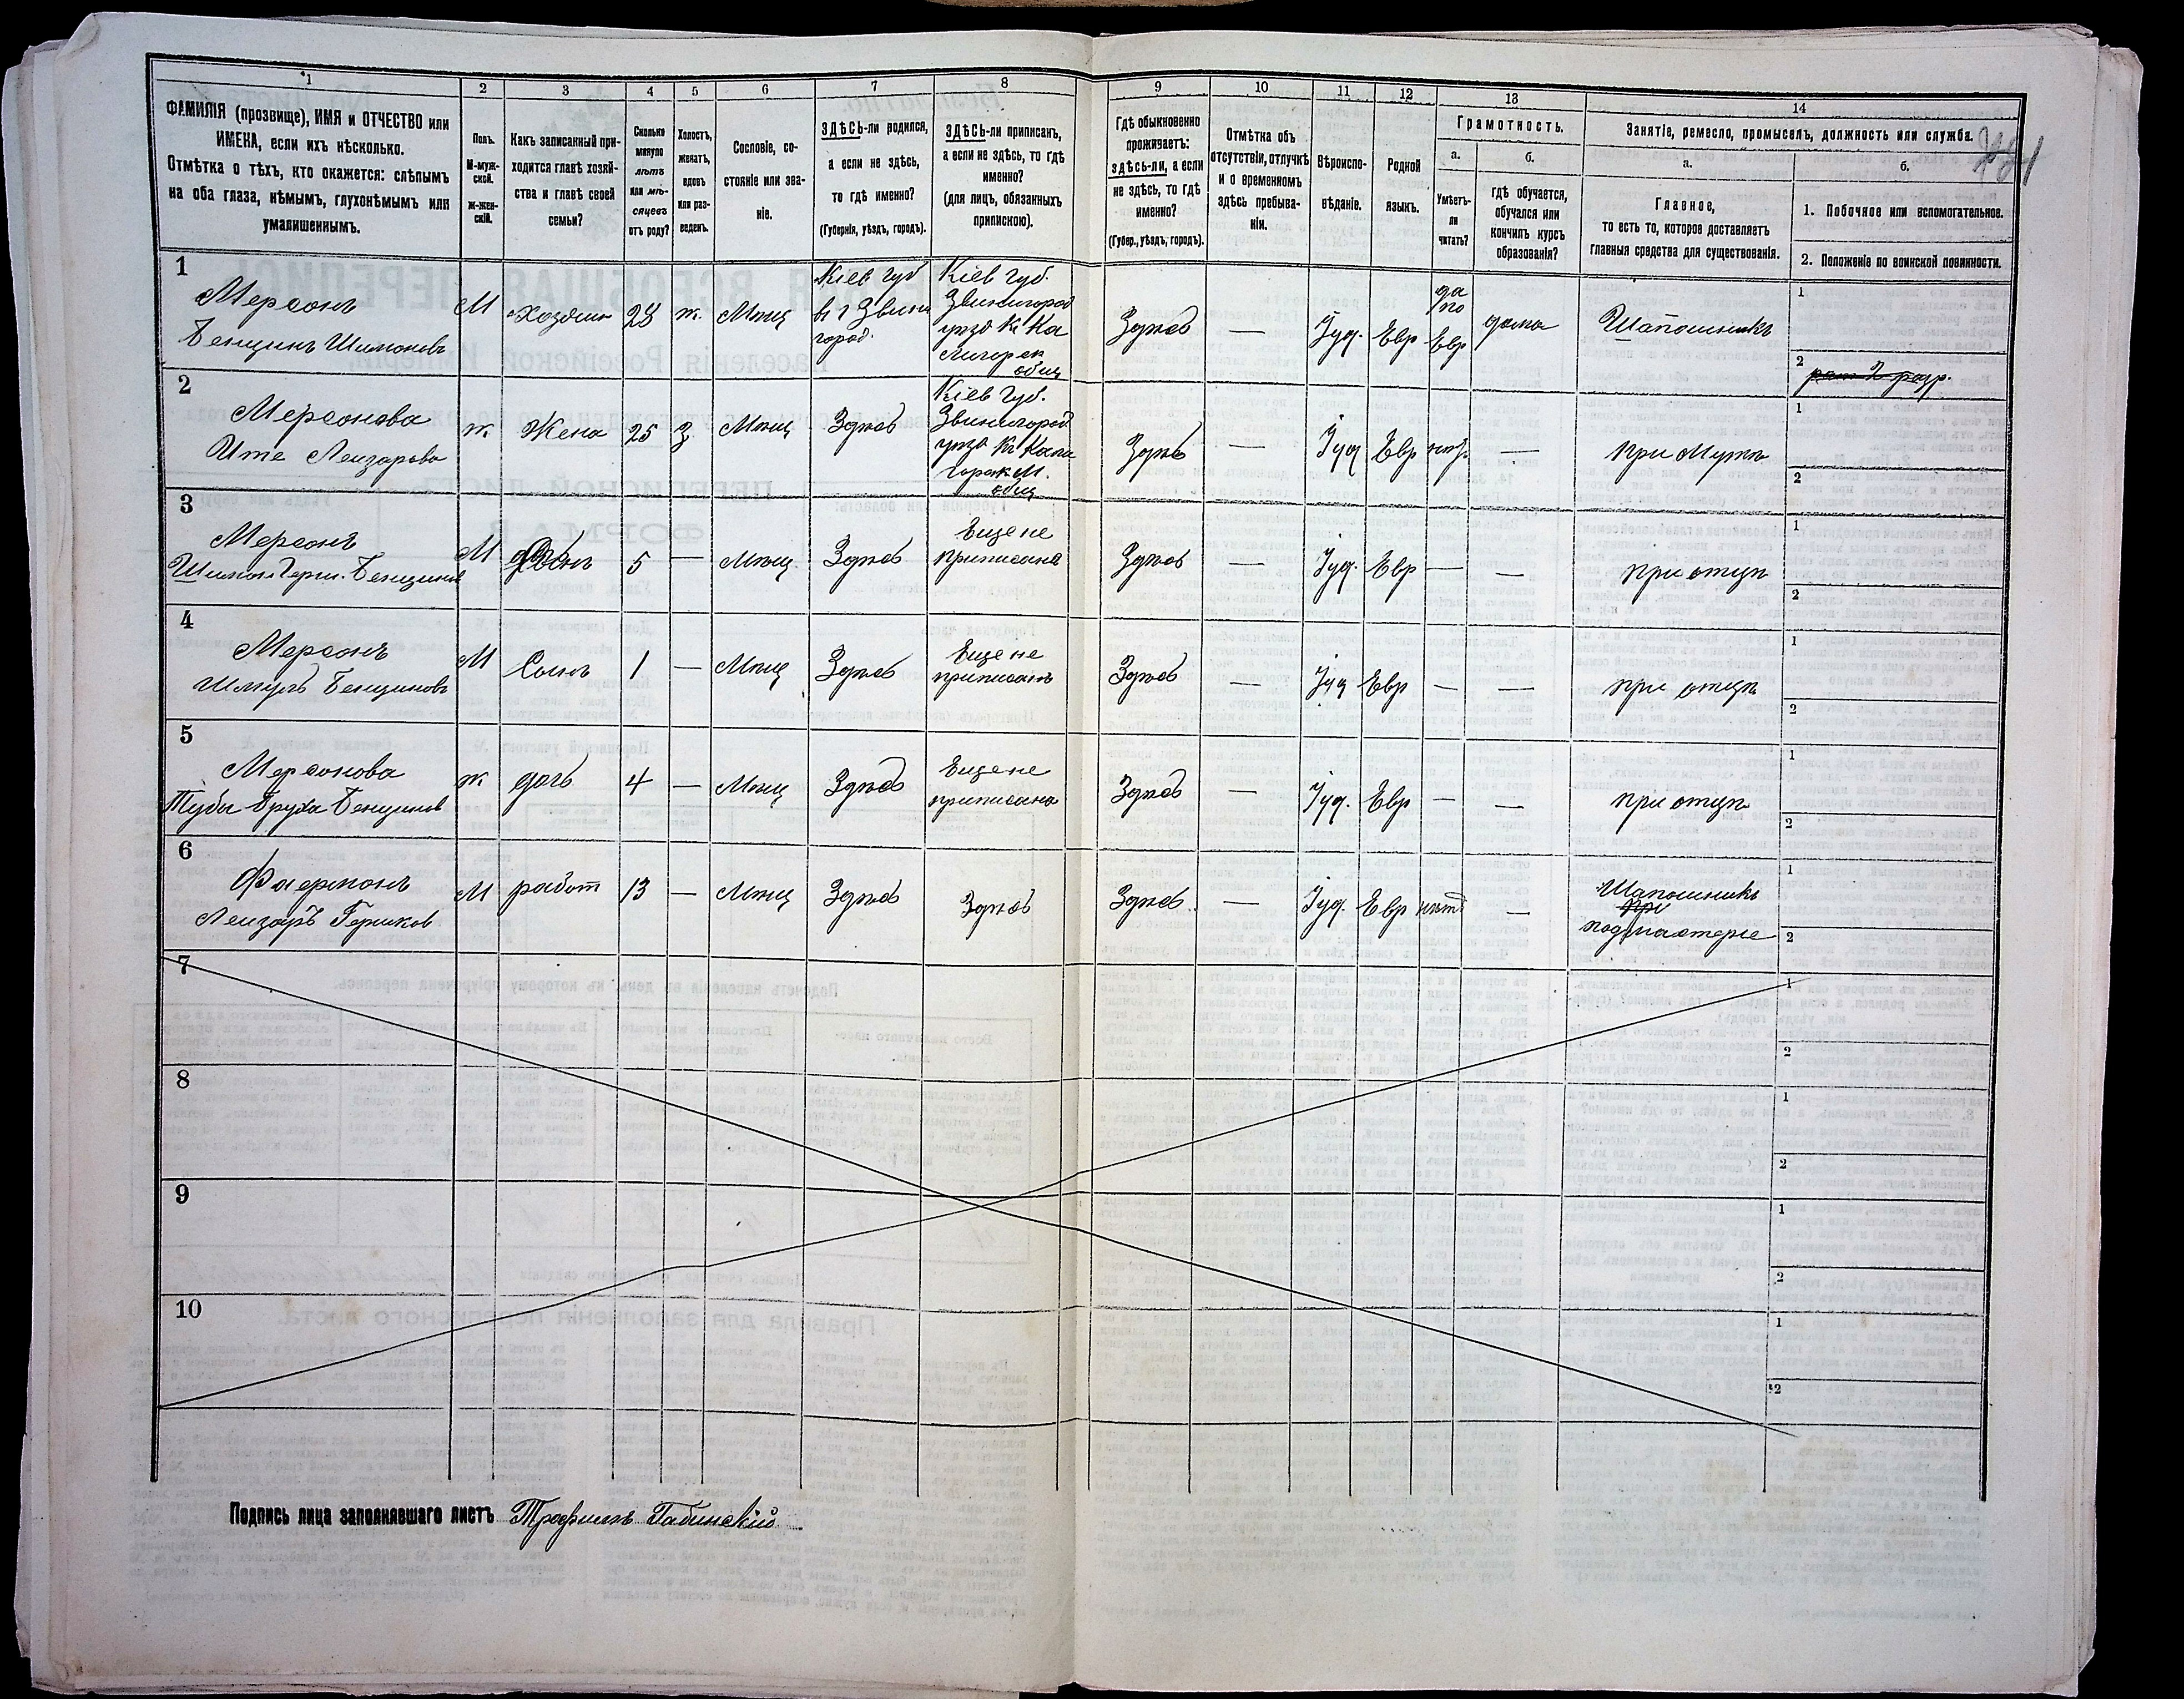 1
2
3
4
5
6
7
8
9
10
11
12
13
14
ФАМИЛІЯ (прозвище), ИМЯ и ОТЧЕСТВО или
ИМЕНА, если ихъ нѣсколько.
Отмѣтка о тѣхъ, кто окажется: слѣпымъ
на оба глаза, нѣмымъ, глухонѣмымъ или
умалишеннымъ.
Полъ.
М-муж-
ской.
Ж-жен-
скій.
Какъ записанный при-
ходится главѣ хозяй-
ства и главѣ своей
семьи?
Сколько
минуло
лѣтъ
или мѣ-
сяцевъ
отъ роду?
Холостъ,
женатъ,
вдовъ
или раз-
веденъ.
Сословіе, со-
стояніе или зва-
ніе.
ЗДѢСЬ-ли родился,
а если не здѣсь,
то гдѣ именно?
(Губернія, уѣздъ, городъ).
ЗДѢСЬ-ли приписанъ,
а если не здѣсь, то гдѣ
именно?
(для лицъ, обязанныхъ
припискою).
Гдѣ обыкновенно
проживаетъ:
здѣсь-ли, а если
не здѣсь, то гдѣ
именно?
(Губер., уѣздъ, городъ).
Отмѣтка объ
отсутствіи, отлучкѣ
и о временномъ
здѣсь пребыва-
ніи.
Вѣроиспо-
вѣданіе.
Родной
языкъ.
Грамотность.
а.
Умѣетъ-
ли
читать?
б.
гдѣ обучается,
обучался или
кончилъ курсъ
образованія?
Занятіе, ремесло, промыселъ, должность или служба.
а.
Главное,
то есть то, которое доставляетъ
главныя средства для существованія.
б.
1. Побочное или вспомогательное.
2. Положеніе по воинской повинности.
1
Мерсонъ
Бенцинъ Шимоновъ
М
Хозяин
28
ж.
Мѣщ
Кіев губ
в г Звени
город.
Кіев губ.
Звенигород
уѣзд
общ
Здѣсь
—
Іуд.
Евр
да
по
Евр
дома
Шапошникъ
1
2
2
Мерсонова
Ите Лейзарова
ж
Жена
25
З
Мѣщ
Здѣсь
Кіев губ.
Звенигород
уѣзд
общ
Здѣсь
—
Іуд
Евр
нѣт.
—
при Мужѣ
1
2
3
Мерсонъ
Шимон Герш. Бенцинов
М
Сынъ
5
—
Мѣщ
Здѣсь
Еще не
приписанъ
Здѣсь
—
Іуд.
Евр
—
—
при отцѣ
1
2
4
Мерсонъ
Шмуль Бенциновъ
М
Сынъ
1
—
Мѣщ
Здѣсь
Еще не
приписанъ
Здѣсь
—
Іуд
Евр
—
—
при отцѣ
1
2
5
Мерсонова
Туба Бруха Бенцинов
ж
дочь
4
—
Мѣщ
Здѣсь
Еще не
приписана
Здѣсь
—
Іуд.
Евр
—
—
при отцѣ
1
2
6
Фаермонъ
Лейзаръ Гершков
М
работ
13
—
Мѣщ
Здѣсь
Здѣсь
Здѣсь
—
Іуд.
Евр
нѣт
—
Шапошникъ
подмастерье
1
2
7
1
2
8
1
2
9
1
2
10
1
2
Подпись лица заполнявшаго листъ Трофимъ Габинскій